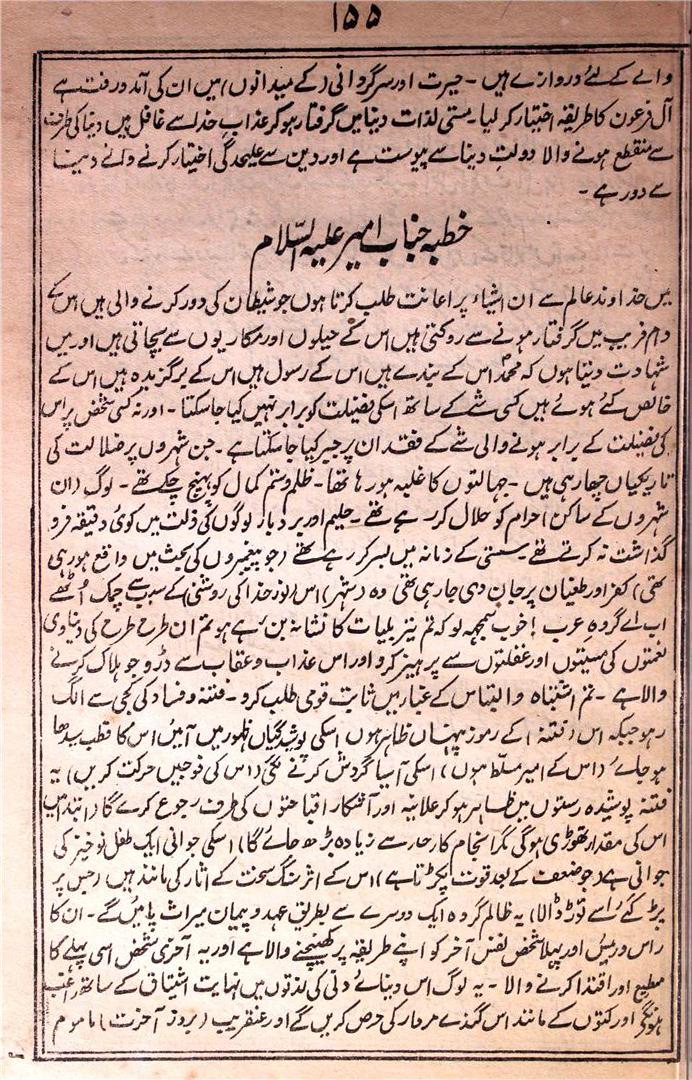 ۱۵۵
والے کے لئے دروازے ہیں ۔ حیرت اور سرگردانی (کے میدانوں) میں ان کی آمد و رفت ہے
آل فرعون کا طریقہ اختیار کر لیا۔ مستی لذات دنیا میں گرفتار ہو کر عذاب خدا سے غافل ہیں دنیا کی طرف
سے منقطع ہونے والا دولت دنیا سے پیوست ہے اور دین سے علیحدگی اختیار کرنے والے دنیا
سے دور ہے ۔
خطبہ جناب امیر علیہ السّلام
میں خداوند عالم سے ان اشیاء پر اعانت طلب کرتا ہوں جو شیطان کی دور کرنے والی ہیں اس کے
دام فریب میں گرفتار ہونے سے روکتی ہیں اس کے حیلوں اور مکاریوں سے بچاتی ہیں اور میں
شہادت دیتا ہوں کہ محمدؐ اس کے بندے ہیں اس کے رسول ہیں اس کے برگزیدہ ہیں اس کے
خالص کئے ہوئے ہیں کسی شے کے ساتھ اسکی فضیلت کو برابر نہیں کیا جا سکتا ۔ اور نہ کسی شخص پر اس
کی فضیلت کے برابر ہونے والی شے کے فقدان پر جبر کیا جا سکتا ہے ۔ جن شہروں پر ضلالت کی
تاریکیاں چھا رہی ہیں ۔ جہالتوں کا غلبہ ہو رہا تھا ۔ ظلم و ستم کمال کو پہنچ چکے تھے ۔ لوگ (ان
شہروں کے ساکن) حرام کو حلال کر رہے تھے ۔ حلیم اور بردبار لوگوں کی ذلت میں کوئی دقیقہ فرو
گذاشت نہ کرتے تھے ۔ سستی کے زمانہ میں بسر کر رہے تھے (جو پیغمبروں کی بعثت میں واقع ہو رہی
تھی) کفر اور طغیان پر جان دی جا رہی تھی وہ (شہر) اس (نور خدا کی روشنی) کے سبب سے چمک اُٹھے
اب اے گروہ عرب! خوب سمجھ لو کہ تم تیر بلیات کا نشانہ بن رہے ہو تم ان طرح طرح کی دنیاوی
نعمتوں کی مستیوں اور غفلتوں سے پرہیز کرو اور اس عذاب و عقاب سے ڈرو جو ہلاک کرنے
والا ہے ۔ تم اشتباہ و التباس کے غبار میں ثابت قدمی طلب کرو ۔ فتنہ و فساد کی کجی سے الگ
رہو جبکہ اس (فتنہ) کے رموز پنہاں ظاہر ہوں اسکی پوشیدگیاں ظہور میں آئیں اس کا قطب سیدھا
ہو جائے (اس کے امیر مسلط ہوں) اسکی آسیا گردش کرنے لگی (اس کی فوجیں حرکت کریں) یہ
فتنہ پوشیدہ رستوں میں ظاہر ہو کر علانیہ اور آشکار اقباحتوں کی طرف رجوع کرے گا (ابتدا میں
اس کی مقدار تھوڑی ہوگی مگر انجام کار حد سے زیادہ بڑھ جائے گا) اسکی جوانی ایک طفل نوخیز کی
جوانی ہے (جو ضعف کے بعد قوت پکڑتا ہے) اس کے اثر سنگ سخت کے آثار کی مانند ہیں (جس پر
پڑ گئے اُسے توڑ ڈالا) یہ ظالم گروہ ایک دوسرے سے بطریق عہد و پیمان میراث پائیں گے ۔ ان کا
راس و رئیس اور پہلا شخص نفس آخر کو اپنے طریقہ پر کھینچنے والا ہے اور یہ آخری شخص اسی پہلے کا
مطیع اور اقتدا کرنے والا ۔ یہ لوگ اس دنیائے دنی کی لذتوں میں نہایت اشتیاق کے ساتھ راغب
ہونگے اور کتوں کے مانند اس گندے مردار کی حرص کریں گے اور عنقریب (بروز آخرت) ماموم